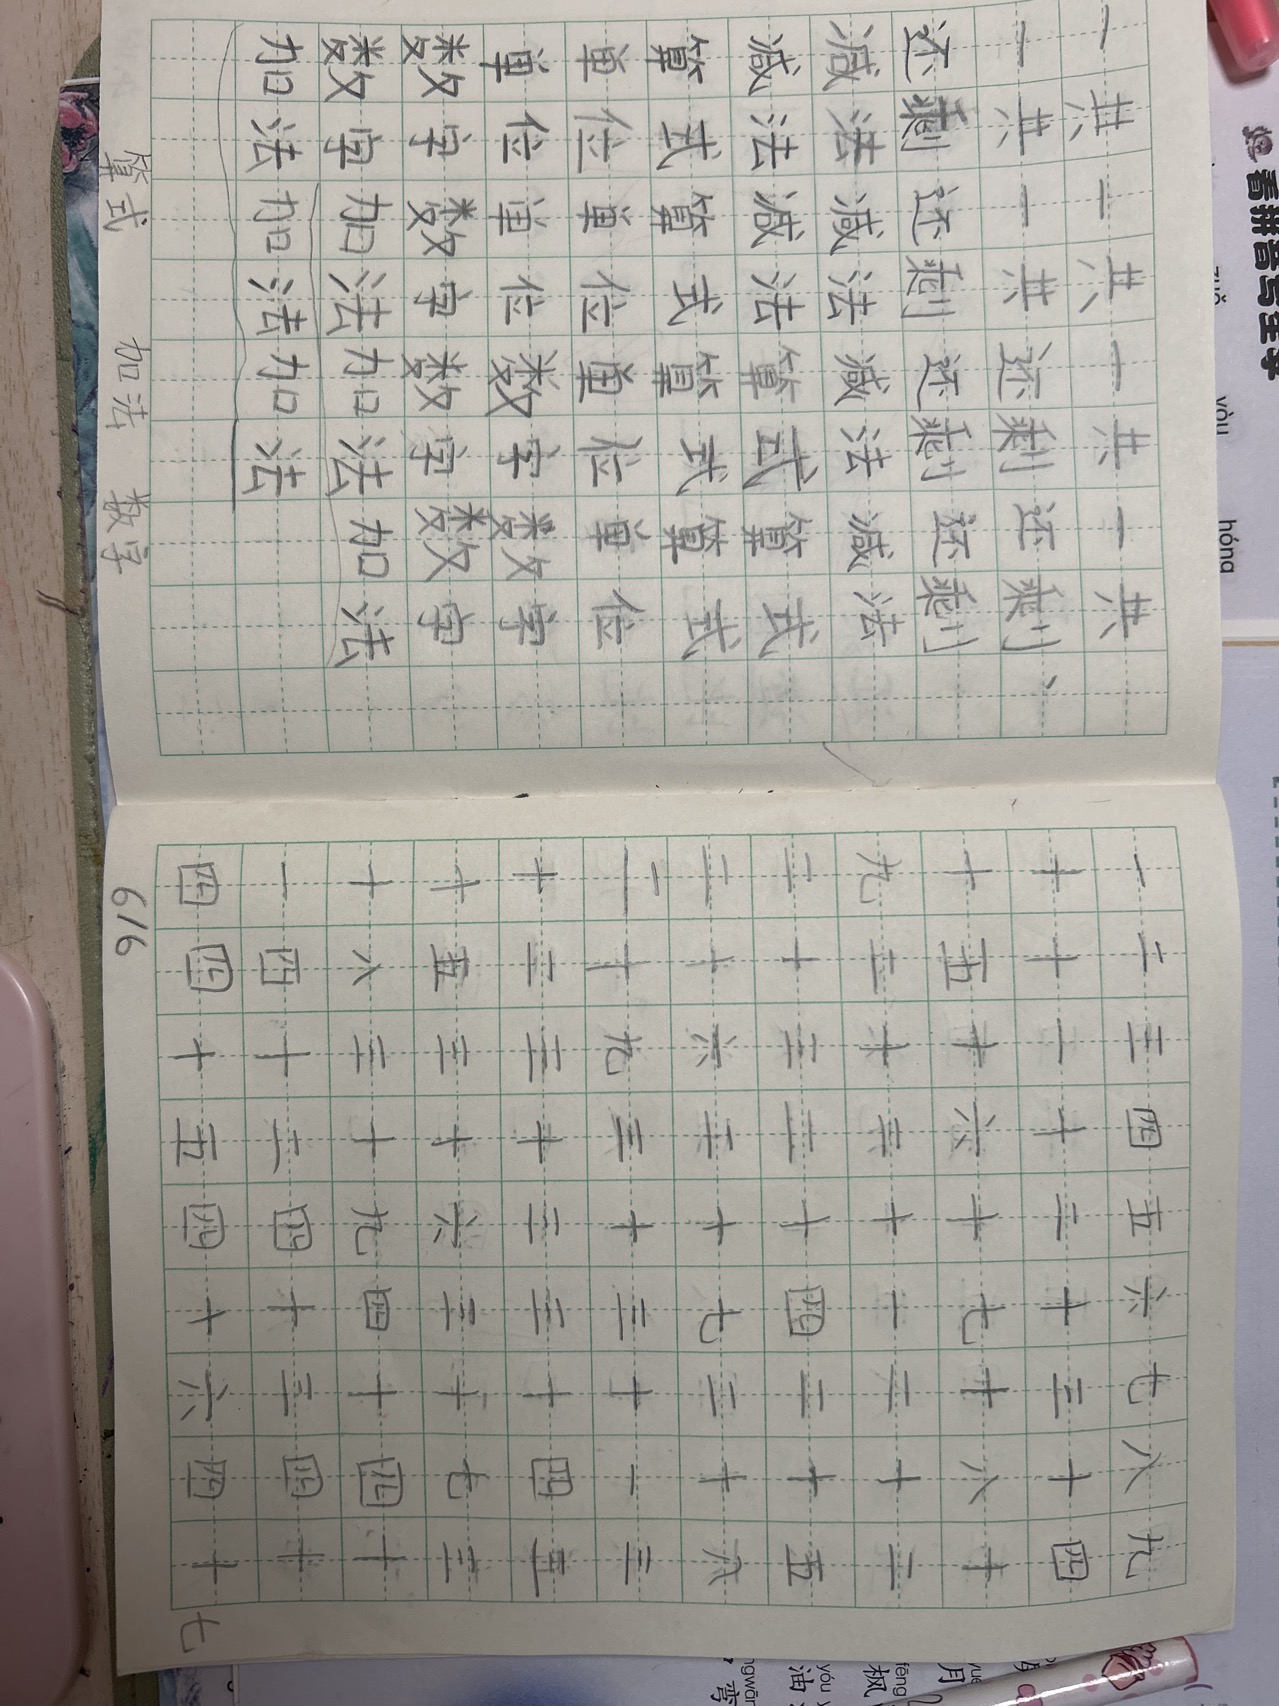 一共一共一共一共
一共一共还剩还剩、
还剩还剩还剩还剩
减法减法减法减法
减法减法算式算式
算式算式算式算式
单位单位单位单位
单位单位数字数字
数字数字数字数字
数字加法加法加法
加法加法加法
算式 加法 数字
一二三四五六七八九
十十一十二十三十四
十五十六十七十八十
九二十二十一二十二
二十三二十四二十五
二十六二十七二十八
二十九三十三十一三
十二三十三三十四五
十五三十六三十七三
十八三十九四十四十
一四十二四十三四十
四四十五四十六四十七
6/6
看拼音写生字
yóu
fēng
月
枫
油
弯